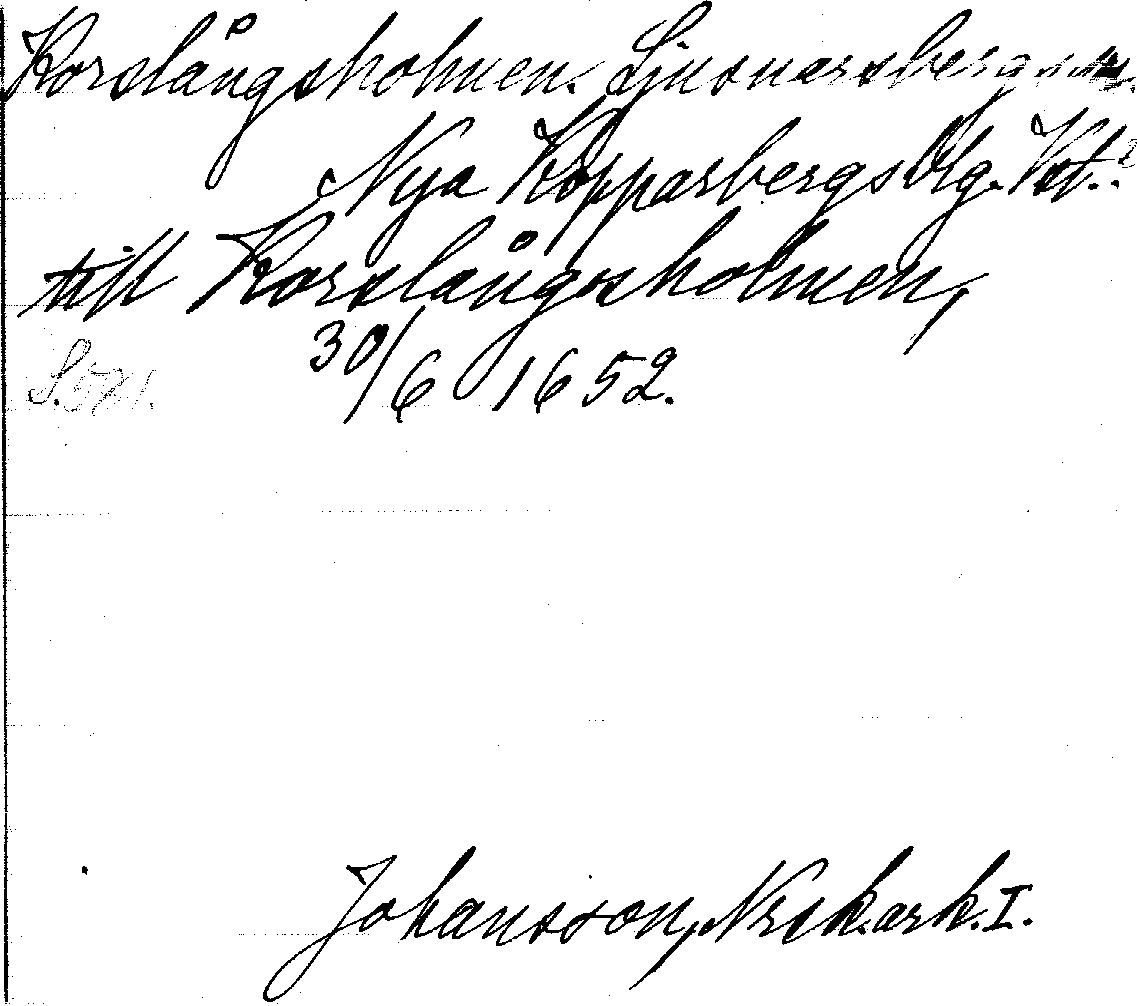 Korslångsholmen. Ljusnarsbergs sn.
Nya Kopparbergs blg. Vst.
till Korslångsholmen,
30/6 1652.
S. 521.
Johansson, Nrikark. I.